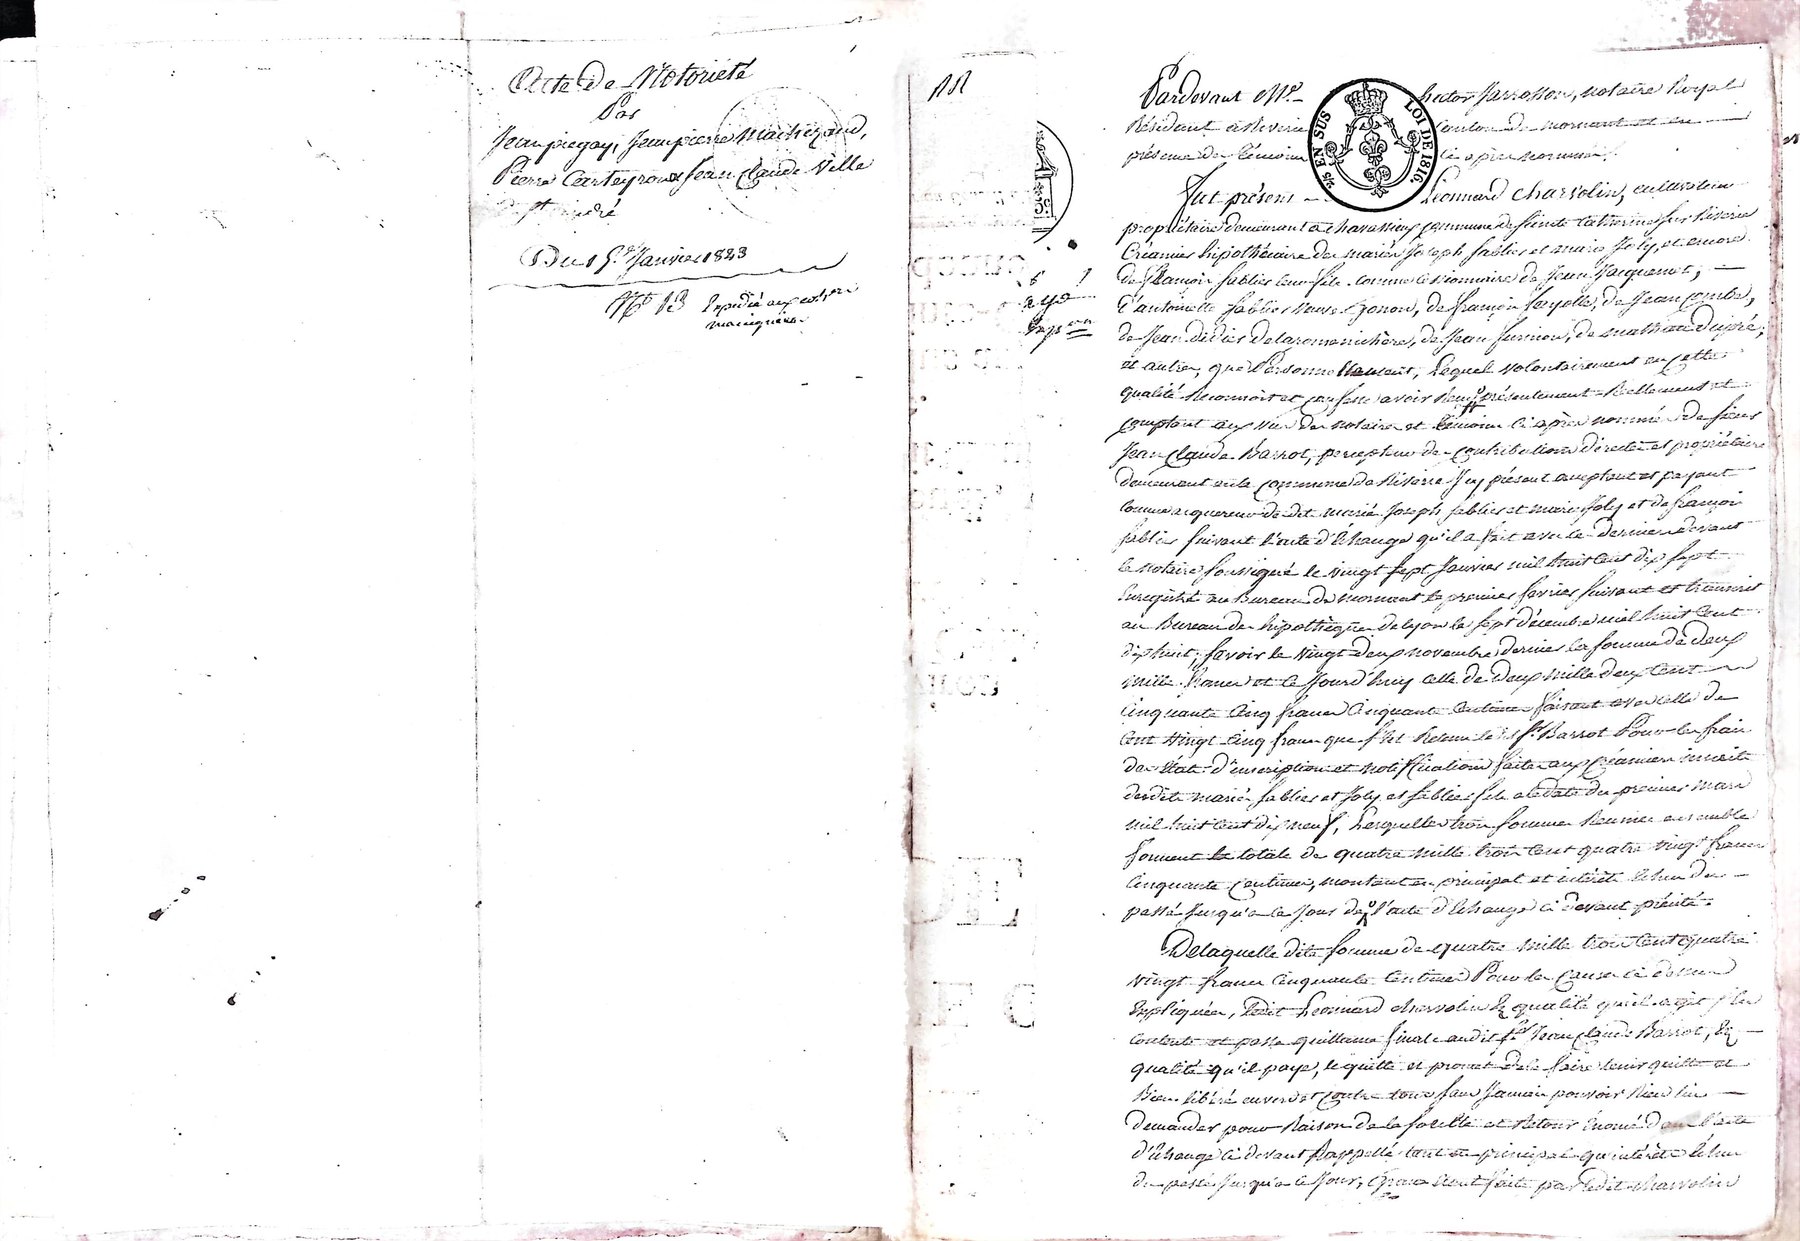 Acte de Notorieté
Par
Jean piegay, Jean pierre Machizaud,
Pierre Carteyron Jean Claude Ville
de St andré
Du 15 Janvier 1823
No 13 Expedié
Pardevant Me hector Jarrosson, notaire Royal
Résidant a Riverie Canton de mornant et en
présence des témoins ci après nommés.
EN SUS
LOI DE 1816.
Fut présent Léonnard Charvolin, cultivateur
propriétaire demeurant a commune de Sainte Catherine sur Riverie
Créancier hipothécaire des mariés Joseph fablier et marie Joly, et encore
de françois fablier leur fils comme cessionnaire de Jean Jacquemet,
d'antoinette fablier veuve de françois fayolle, de Jean Combe,
de Jean didier delaromenichère, de Jean furnion, de mathieu Dupré,
et autres, que Personnellement, Lequel volontairement en cette
qualité Reconnoit et confesse avoir Reçu présentement Réellement et
comptant aux vue du notaire et témoins ci après nommés de sieur
Jean Claude Barrot, percepteur des contributions directes et propriétaire
demeurant en la commune de Riverie Icy présent acceptant et payant
comme acquereur de dit mariés Joseph fablier et marie Joly et de françois
fablier suivant l'acte d'échange qu'il a fait avec le dernier devant
le notaire soussigné le vingt sept Janvier mil huit cent dix sept
Enregistré au Bureau de mornant le premier fevrier suivant et transcrit
au Bureau des hipothèques de lyon le sept décembre mil huit cent
dix huit, savoir le vingt deux novembre dernier la somme de deux
mille francs et ce Jourd'huy celle de deux mille deux cent
cinquante cinq francs cinquante centimes faisant avec celle de
cent vingt cinq francs que s'est Retenu le dit sr Barrot Pour les frais
de l'état d'inscription et notiffication faite aux Créanciers inscrits
desdits mariés fablier et Joly et fablier fils a la date du premier mars
mil huit cent dix neuf, Lesquelles trois sommes Réunies ensemble
forment la totale de quatre mille trois cent quatre vingt francs
cinquante centimes, montant en principal et intérêts échus du
passé jusqu'a ce Jour de l'acte d'échange ci devant précité.
Delaquelle dite somme de quatre mille trois cent quatre
vingt francs cinquante centimes Pour les causes ci dessus
Expliquées, Ledit Léonnard charvolin En qualité qu'il agit s'en
contente et passe quittance finale audit sr Jean Claude Barrot, En
qualité qu'il paye, le quitte et promet de le faire tenir quitte et
Bien libéré envers et contre tous sans Jamais pouvoir Rien lui
demander pour Raison de la soulte et Retour énoncé dans l'acte
d'échange ci devant Rappellé tant en principal qu'intérêts échus
du passé Jusqu'a ce Jour, faite par ledit charvolin